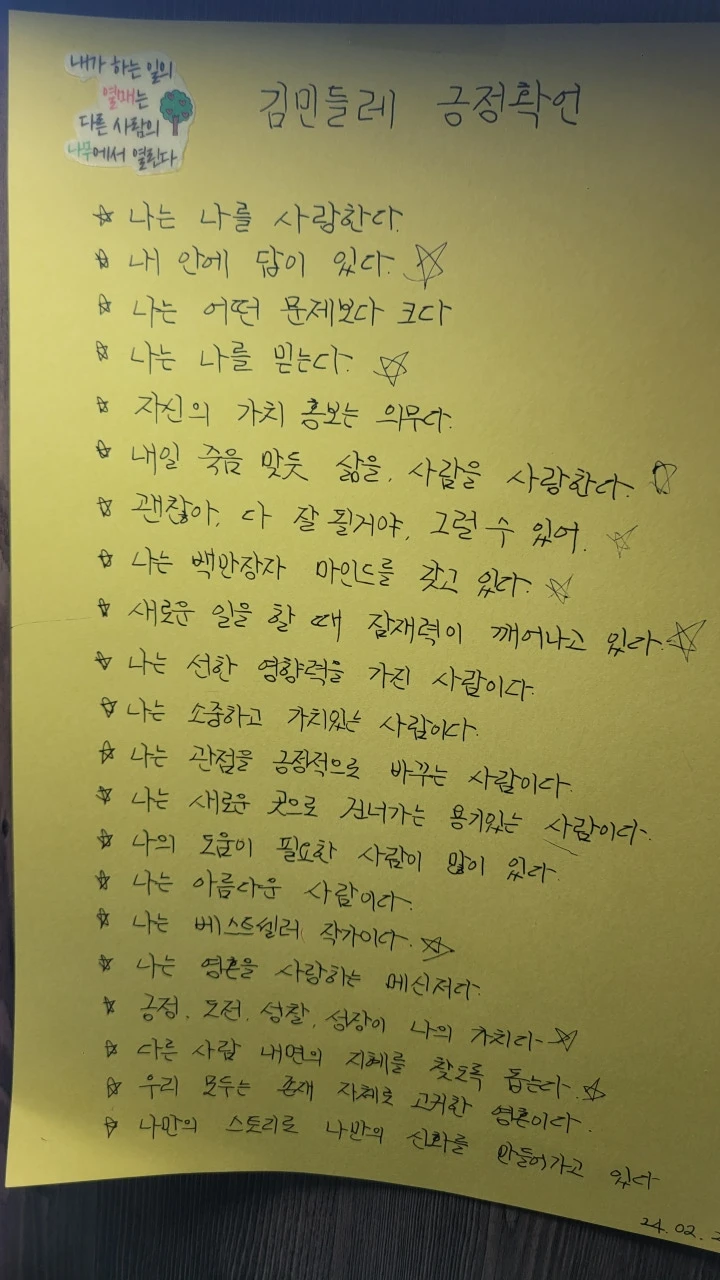 내가 하는 일의
열매는
다른 사람의
나무에서 열린다
김민들레 긍정확언
☆ 나는 나를 사랑한다.
☆ 내 안에 답이 있다. ☆
☆ 나는 어떤 문제보다 크다
☆ 나는 나를 믿는다. ☆
☆ 자신의 가치 홍보는 의무다.
☆ 내일 죽음 맞듯 삶을, 사람을 사랑한다. ☆
☆ 괜찮아, 다 잘 될거야, 그럴 수 있어. ☆
☆ 나는 백만장자 마인드를 갖고 있다. ☆
☆ 새로운 일을 할 때 잠재력이 깨어나고 있다. ☆
☆ 나는 선한 영향력을 가진 사람이다.
☆ 나는 소중하고 가치있는 사람이다.
☆ 나는 관점을 긍정적으로 바꾸는 사람이다.
☆ 나는 새로운 곳으로 건너가는 용기있는 사람이다.
☆ 나의 도움이 필요한 사람이 많이 있다.
☆ 나는 아름다운 사람이다.
☆ 나는 베스트셀러 작가이다. ☆
☆ 나는 영혼을 사랑하는 메신저다.
☆ 긍정, 도전, 성찰, 성장이 나의 가치다 ☆
☆ 다른 사람 내면의 지혜를 찾도록 돕는다. ☆
☆ 우리 모두는 존재 자체로 고귀한 영혼이다.
☆ 나만의 스토리로 나만의 신화를 만들어가고 있다
24.02.